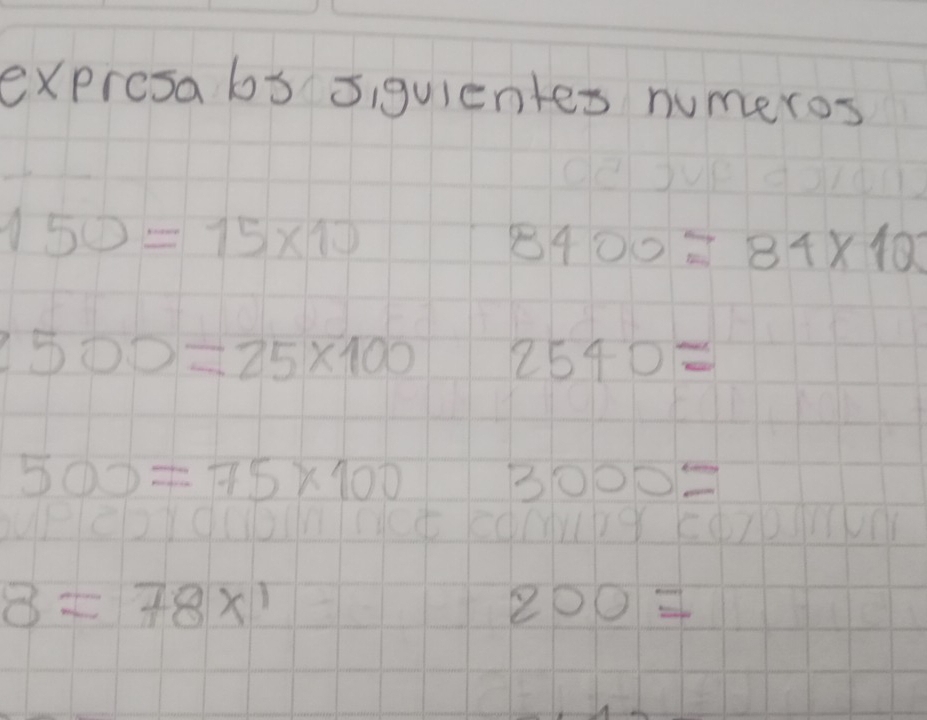 expresa los siguientes numeros
150 = 15x10 8400 = 84x100
2500 = 25x100 2540 =
500 = 75x100 3000 =
8 = 78x1 200 =